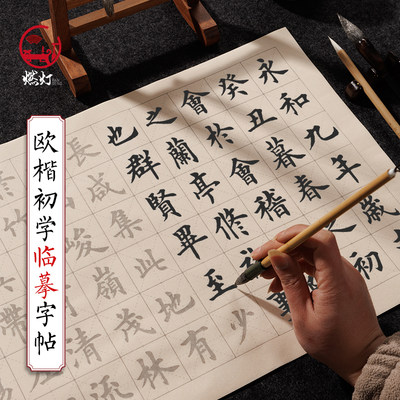 燃灯
欧楷初学临摹字帖
永和九年歲
癸丑暮春初
會於會稽
之蘭亭修
也群賢畢至少
長咸集此地有
峻嶺茂林
竹清流
帶